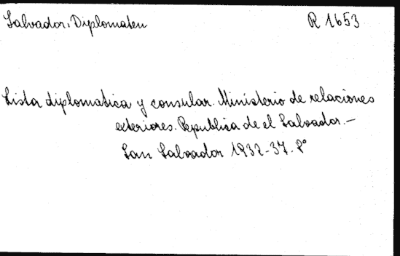 Salvador: Diplomaten R 1653
Lista diplomatica y consular. Ministerio de relaciones
exteriores. Republica de el Salvador.—
San Salvador 1932-37. 8°